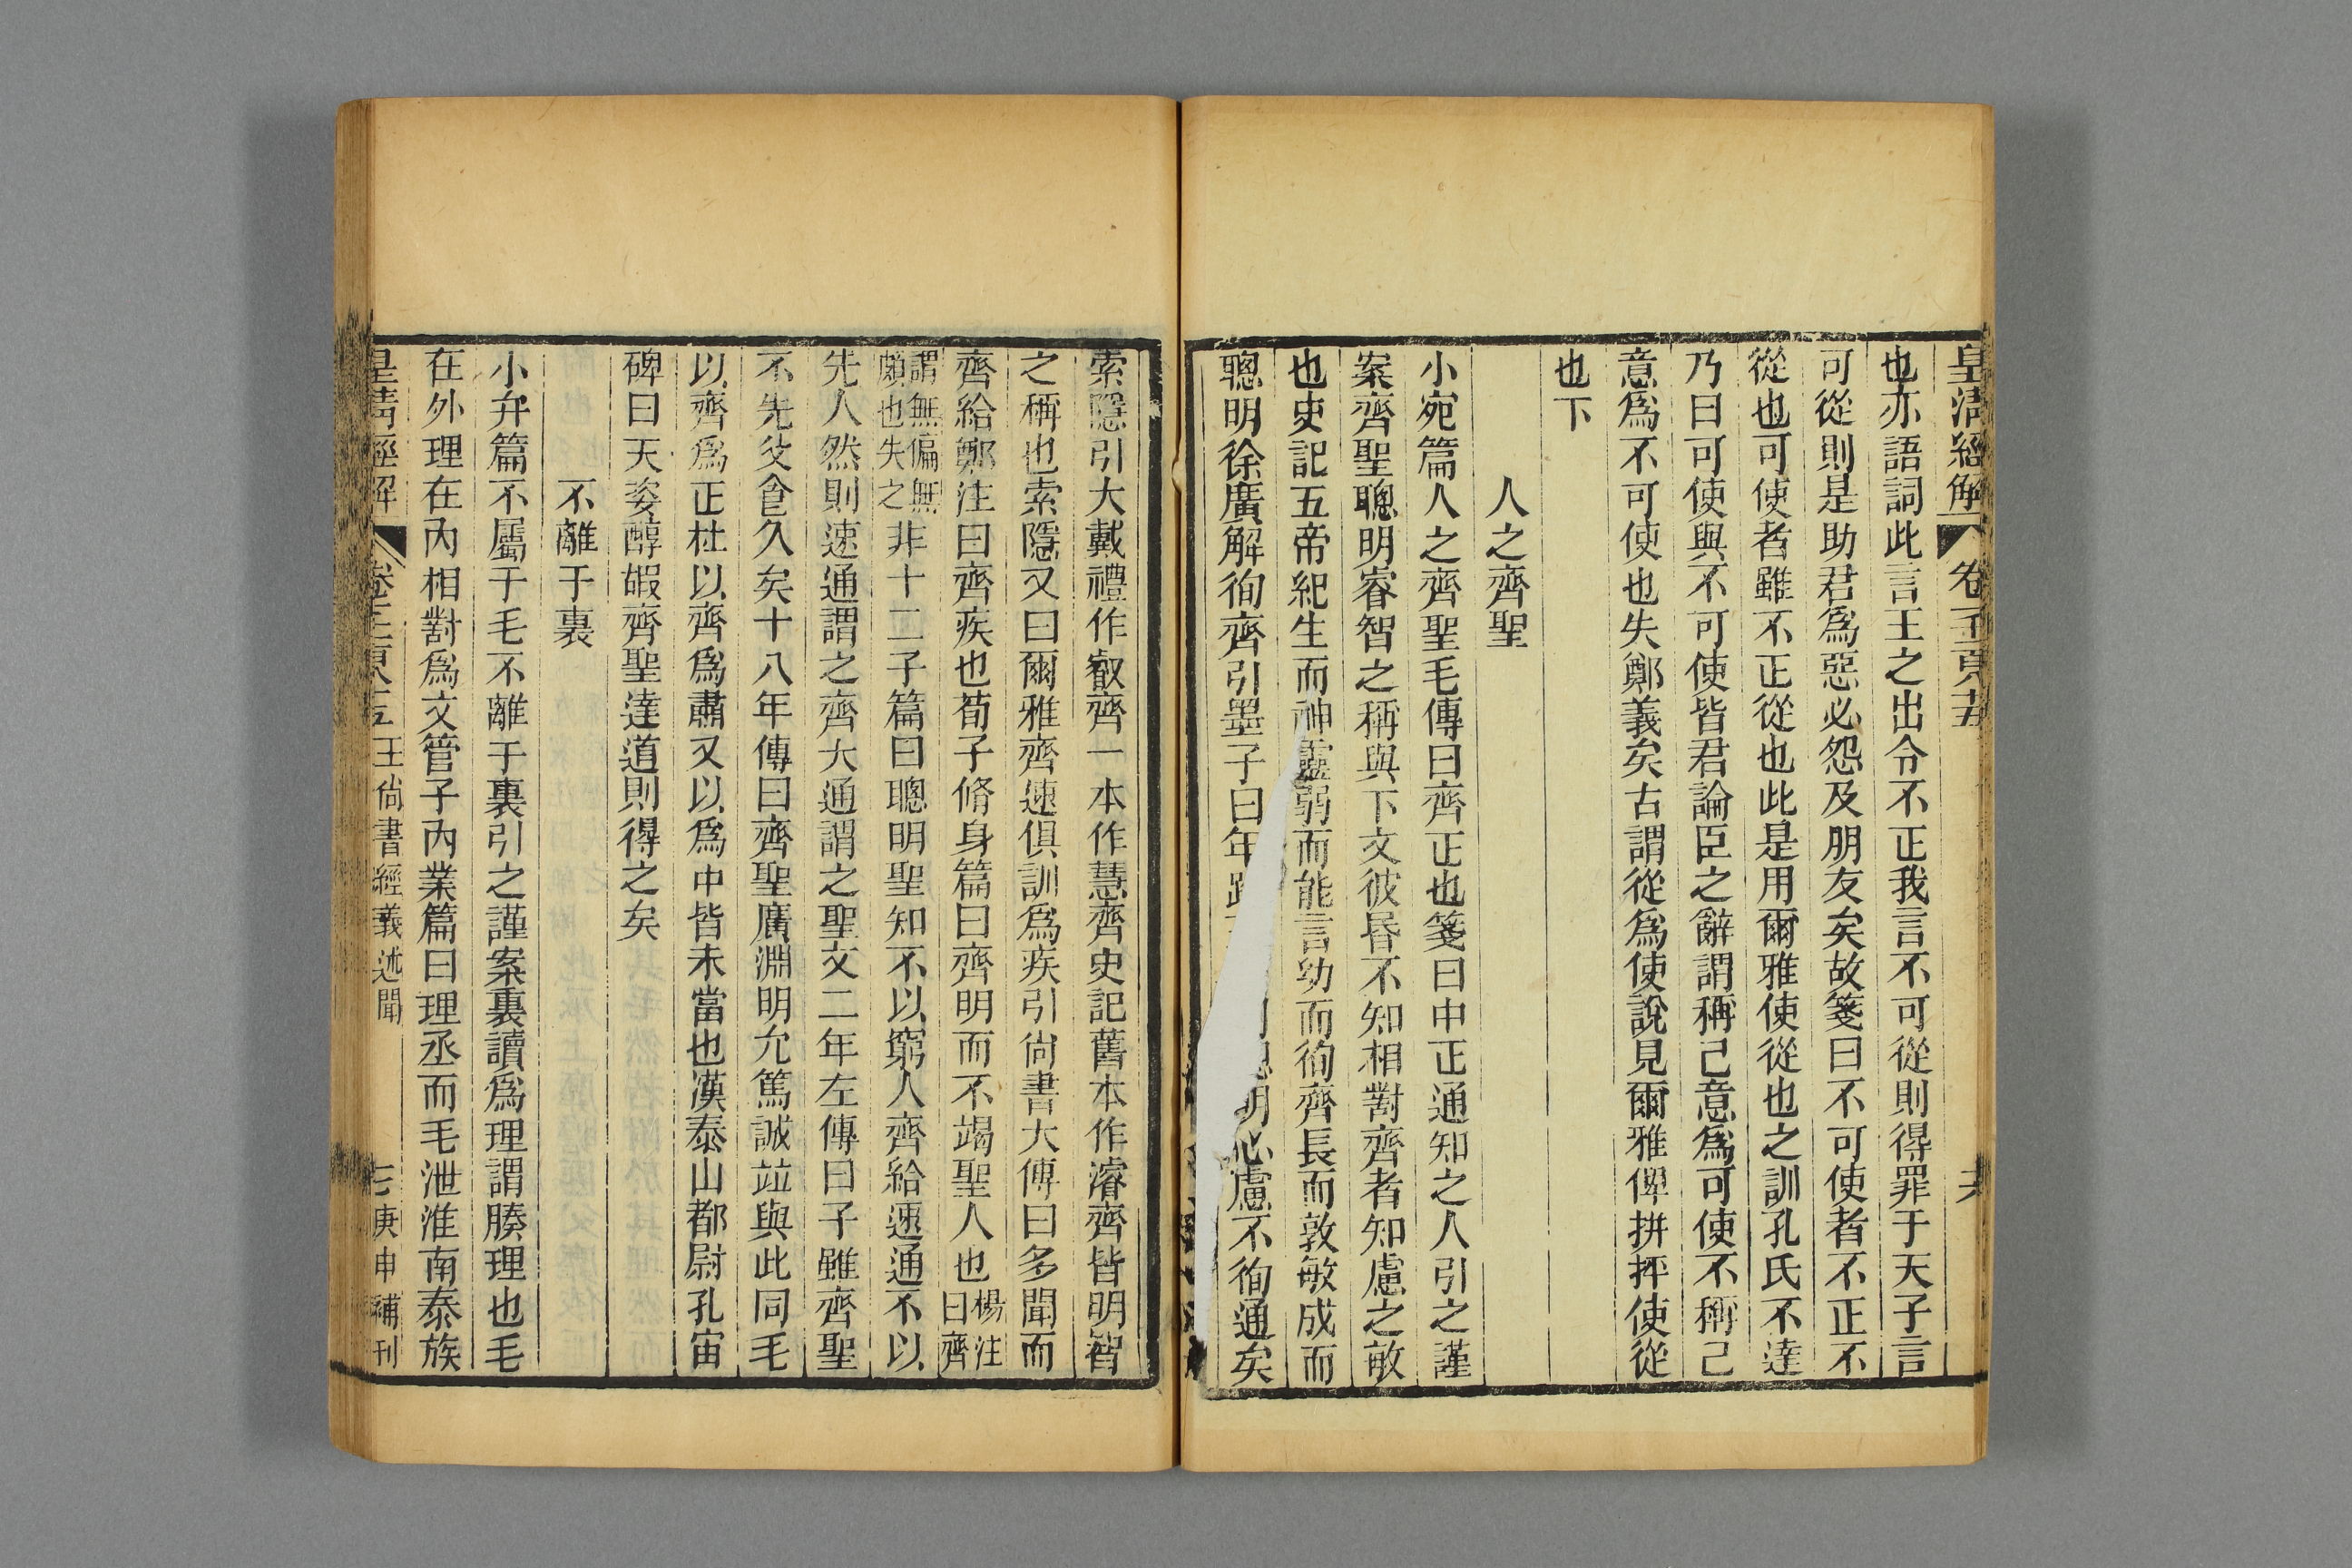 皇清經解 卷千一百十五 大
也亦語詞此言王之出令不正我言不可從則得罪于天子言
可從則是助君爲惡必怨及朋友矣故箋曰不可使者不正不
從也可使者雖不正從也此是用爾雅使從也之訓孔氏不達
乃曰可使與不可使皆君論臣之辭謂稱己意爲可使不稱己
意爲不可使也失鄭義矣古謂從爲使說見爾雅俾拼抨使從
也下
人之齊聖
小宛篇人之齊聖毛傳曰齊正也箋曰中正通知之人引之謹
案齊聖聰明睿智之稱與下文彼昬不知相對齊者知慮之敏
也史記五帝紀生而神靈弱而能言幼而徇齊長而敦敏成而
聰明徐廣解徇齊引墨子曰年 聰明心慮不徇通矣
索隱引大戴禮作叡齊一本作慧齊史記舊本作濬齊皆明智
之稱也索隱又曰爾雅齊速俱訓爲疾引尙書大傳曰多聞而
齊給鄭注曰齊疾也荀子脩身篇曰齊明而不竭聖人也楊注曰齊
謂無偏無頗也失之非十二子篇曰聰明聖知不以窮人齊給速通不以
先人然則速通謂之齊大通謂之聖文二年左傳曰子雖齊聖
不先父食久矣十八年傳曰齊聖廣淵明允篤誠竝與此同毛
以齊爲正杜以齊爲肅又以爲中皆未當也漢泰山都尉孔宙
碑曰天姿醇嘏齊聖達道則得之矣
不離于裏
小弁篇不屬于毛不離于裏引之謹案裏讀爲理謂腠理也毛
在外理在內相對爲文管子內業篇曰理丞而毛泄淮南泰族
皇清經解 王尙書經義述聞 七 庚申補刊